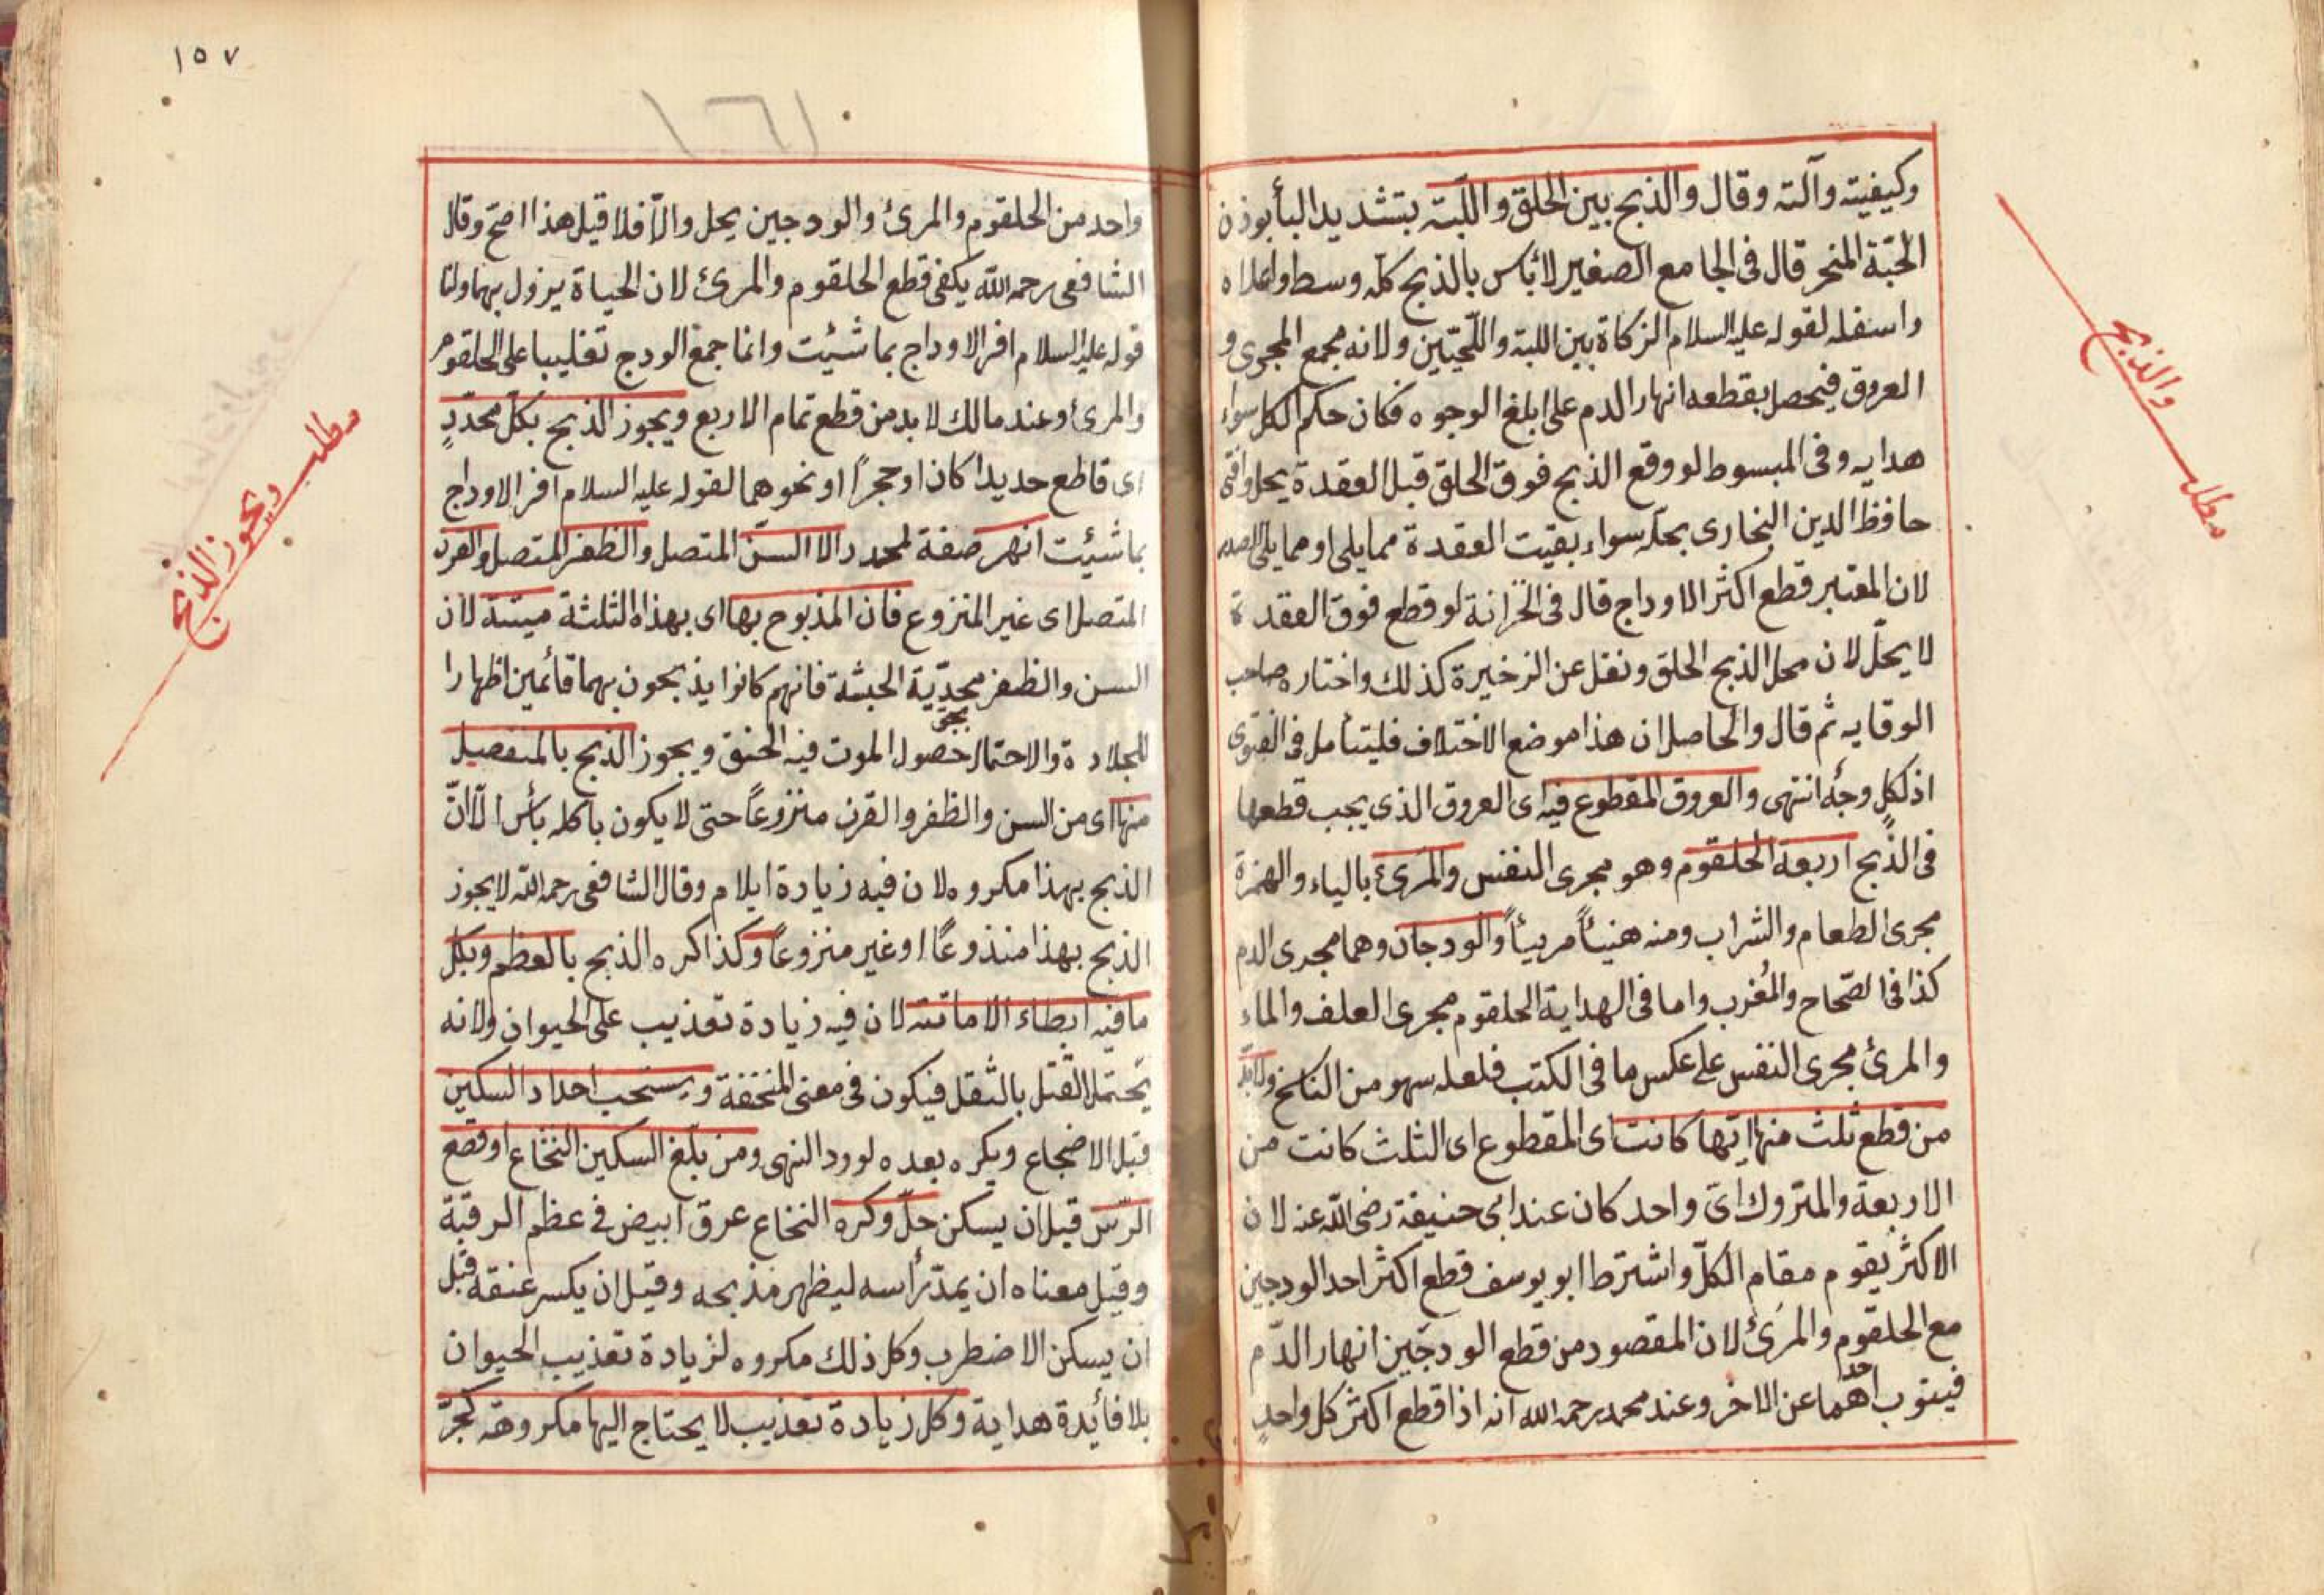 وكيفيته وآلته وقال والذبح بين الحلق واللّبّة بتشديد البأ بوزن
الحَبّة المنحر قال فى الجامع الصغير لا بأس بالذبح كله وسط واعلاه
واسفله لقوله عليه السلام الزكاة بين اللبة واللّحيّين ولانه مجمع المجرى و
العروق فيحصل بقطعه انهار الدم على ابلغ الوجوه فكان حكم الكل سواء
هدايه وفى المبسوط لو وقع الذبح فوق الحلق قبل العقدة يحل وافتى
حافظ الدين البخارى بحلّه سواء بقيت العقدة مما يلى او مما يلى الصدر
لان المعتبر قطع اكثر الاوداج قال فى الخزانة لو قطع فوق العقدة
لا يحلّ لان محل الذبح الحلق ونقل عن الزخيرة كذلك واختاره صاحب
الوقايه ثم قال والحاصل ان هذا موضع الاختلاف فليتأمل فى الفتوى
اذ لكلٍ وجهٌ انتهى والعروق المقطوع فيه اى العروق الذى يجب قطعها
فى الذّبح اربعة الحلقوم وهو مجرى النفس والمرئ بالياء والهمزة
مجرى الطعام والشراب ومنه هنيئاً مريئاً والودجان وهما مجرى الدم
كذا فى الصّحاح والمُغرب واما فى الهداية الحلقوم مجرى العلف والماء
والمرئ مجرى النفس على عكس ما فى الكتب فلعله سهو من الناسخ ولابدّ
من قطع ثلث منها ايّها كانت اى المقطوع اى الثلث كانت من
الاربعة والمتروك اىّ واحد كان عند ابى حنيفة رضى الله عنه لان
الاكثر يقوم مقام الكلّ واشترط ابو يوسف قطع اكثر احد الودجين
مع الحلقوم والمرئ لان المقصود من قطع الودجين انهار الدّم
فينوب احدهما عن الاخر وعند محمد رحمه الله انه اذا قطع اكثر كل واحدٍ
والذبح
مطلب
١٥٧
١٦١
واحد من الحلقوم والمرئ والودجين يحل والّا فلا قيل هذا اصح وقال
الشافعى رحمه الله يكفى قطع الحلقوم والمرئ لان الحياة يزول بهما ولنا
قوله عليه السلام افر الاوداج بما شئيت وانما جمع الودج تغليبا على الحلقوم
والمرئ وعند مالك لا بد من قطع تمام الاربع ويجوز الذبح بكلّ محدّدٍ
اى قاطع حديدا كان او حجرًا او نحوهما لقوله عليه السلام افر الاوداج
بما شئيت انهر صفة لمحدد الا السنّ المتصل والظفر المتصل والقرن
المتصل اى غير المنزوع فان المذبوح بها اى بهذه الثلثة ميتة لان
السن والظفر محدّيّة الحبشة فانهم كانوا يذبحون بهما قائمين اظهارا
للجلادة والاحتمال حصول الموت فيه الخنق ويجوز الذبح بالمنفصيل
منها اى من السن والظفر والقرن منزوعاً حتى لا يكون باكله بأس الّا انّ
الذبح بهذا مكروه لان فيه زيادة ايلام وقال الشافعى رحمه الله لا يجوز
الذبح بهذا منذوعًا او غير منزوعاً وكذا كره الذبح بالعظم وبكل
ما فيه ابطاء الاماتة لان فيه زيادة تعذيب على الحيوان ولانه
يحتمل القتل بالثقل فيكون فى معنى المنخقفة ويستحب احداد السكين
قبل الاضجاع ويكره بعده لورود النهى ومن بلّغ السكين النخاع او قطع
الرّس قبل ان يسكن حلّ وكره النخاع عرق ابيض فى عظم الرقبة
وقيل معناه ان يمدّ رأسه ليظهر مذبحه وقيل ان يكسر عنقه قبل
ان يسكن الاضطرب وكل ذلك مكروه لزيادة تعذيب الحيوان
بلا فأيدة هداية وكل زيادة تعذيب لا يحتاج اليها مكروهة كجرّ
مطلب
ويجوز الذبح